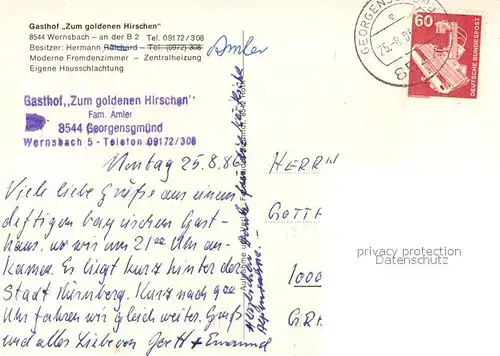 Gasthof „Zum goldenen Hirschen"
8544 Wernsbach – an der B 2 Tel. 09172/308
Besitzer: Hermann – Tel. (0972) 308
Moderne Fremdenzimmer – Zentralheizung
Eigene Hausschlachtung
Amler
Gasthof „Zum goldenen Hirschen"
Fam. Amler
8544 Georgensgmünd
Wernsbach 5 - Telefon 09172/308
Montag 25.8.86
Viele liebe Grüße aus einem
deftigen bayrischen Gast-
haus. wo wir um 21 00 Uhr an-
kamen. Es liegt kurz hinter der
Stadt Nürnberg. Kurz nach 9 00
Uhr fahren wir gleich weiter. Gruß
und alles Liebe von Gertt +
HERRN
GOTTF
1000
GRA
GEORGENSGMÜND
25.-8.86
854
60
DEUTSCHE BUNDESPOST
privacy protection
Datenschutz